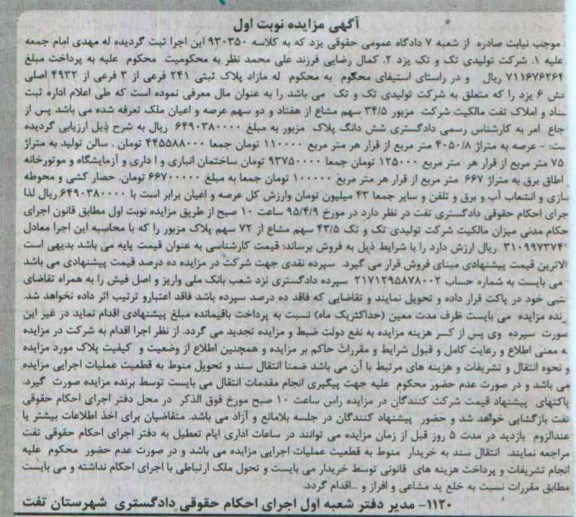 آگهی مزایده نوبت اول
موجب نیابت صادره از شعبه ۷ دادگاه عمومی حقوقی یزد که به کلاسه ۹۳۰۳۵۰ این اجرا ثبت گردیده له مهدی امام جمعه
علیه ۱. شرکت تولیدی تک و تک یزد ۲. کمال رضایی فرزند علی محمد نظر به محکومیت محکوم علیه به پرداخت مبلغ
۷۱۱۶۷۶۲۶۴ ریال و در راستای استیفای محکوم به محکوم له مازاد پلاک ثبتی ۲۴۱ فرعی از ۳ فرعی از ۴۹۳۲ اصلی
ش ۶ یزد را که متعلق به شرکت تولیدی تک و تک می باشد را به عنوان مال معرفی نموده است که طی اعلام اداره ثبت
ناد و املاک تفت مالکیت شرکت مزبور ۳۴/۵ سهم مشاع از هفتاد و دو سهم عرصه و اعیان ملک تعرفه شده می باشد پس از
جاع امر به کارشناس رسمی دادگستری شش دانگ پلاک مزبور به مبلغ ۶۴۹۰۳۸۰۰۰۰ ریال به شرح ذیل ارزیابی گردیده
ست:- عرصه به متراژ ۴۰۵۰/۸ متر مربع از قرار هر متر مربع ۱۱۰۰۰۰ تومان جمعا ۴۴۵۵۸۸۰۰۰ تومان . سالن تولید به متراژ
۷۵ متر مربع از قرار هر متر مربع ۱۲۵۰۰۰ تومان جمعا ۹۳۷۵۰۰۰ تومان ساختمان انباری و اداری و آزمایشگاه و موتورخانه
اطاق برق به متراژ ۶۶۷ متر مربع از قرار هر متر مربع ۱۰۰۰۰۰ تومان جمعا به مبلغ ۶۶۷۰۰۰۰۰ تومان. حصار کشی و محوطه
سازی و انشعاب آب و برق و تلفن و سایر جمعا ۴۳ میلیون تومان وارزش کل عرصه و اعیان برابر است با ۶۴۹۰۳۸۰۰۰۰ ریال لذا
جرای احکام حقوقی دادگستری تفت در نظر دارد در مورخ ۹۵/۴/۹ ساعت ۱۰ صبح از طریق مزایده نوبت اول مطابق قانون اجرای
حکام مدنی میزان مالکیت شرکت تولیدی تک و تک ۴۳/۵ سهم مشاع از ۷۲ سهم پلاک مزبور را که با محاسبه این اجرا معادل
۳۱۰۹۹۷۳۷۴۰ ریال ارزش دارد را با شرایط ذیل به فروش برساند: قیمت کارشناسی به عنوان قیمت پایه می باشد بدیهی است
الاترین قیمت پیشنهادی مبنای فروش قرار می گیرد. سپرده نقدی جهت شرکت در مزایده ده درصد قیمت پیشنهادی می باشد
می بایست به شماره حساب ۲۱۷۱۲۹۵۸۷۸۰۰۲ سپرده دادگستری نزد شعب بانک ملی واریز و اصل فیش را به همراه تقاضای
تبی خود در پاکت قرار داده و تحویل نمایند و تقاضایی که فاقد ده درصد سپرده باشد فاقد اعتبارو ترتیب اثر داده نخواهد شد.
رنده مزایده می بایست ظرف مدت معین (حداکثریک ماه) نسبت به پرداخت باقیمانده مبلغ پیشنهادی اقدام نماید در غیر این
صورت سپرده وی پس از کسر هزینه مزایده به نفع دولت ضبط و مزایده تجدید می گردد. از نظر اجرا اقدام به شرکت در مزایده
به معنی اطلاع و رعایت کامل و قبول شرایط و مقررات حاکم بر مزایده و همچنین اطلاع از وضعیت و کیفیت پلاک مورد مزایده
و نحوه انتقال و تشریفات و هزینه های مرتبط با آن می باشد ضمنا انتقال سند و تحویل منوط به قطعیت عملیات اجرایی مزایده
می باشد و در صورت عدم حضور محکوم علیه جهت پیگیری انجام مقدمات انتقال می بایست توسط برنده مزایده صورت گیرد.
پاکتهای پیشنهاد قیمت شرکت کنندگان در مزایده راس ساعت ۱۰ صبح مورخ فوق الذکر در محل دفتر اجرای احکام حقوقی
تفت بازگشایی خواهد شد و حضور پیشنهاد کنندگان در جلسه بلامانع و آزاد می باشد. متقاضیان برای اخذ اطلاعات بیشتر یا
عندالزوم بازدید در مدت ۵ روز قبل از زمان مزایده می توانند در ساعات اداری ایام تعطیل به دفتر اجرای احکام حقوقی تفت
مراجعه نمایند. انتقال سند به خریدار منوط به قطعیت عملیات اجرایی مزایده می باشد و در صورت عدم حضور محکوم علیه
انجام تشریفات و پرداخت هزینه های قانونی توسط خریدار می بایست و تحول ملک ارتباطی با اجرای احکام نداشته و می بایست
مطابق مقررات نسبت به خلع ید مشاعی و افراز و ..اقدام گردد.
۱۱۲۰- مدیر دفتر شعبه اول اجرای احکام حقوقی دادگستری شهرستان تفت